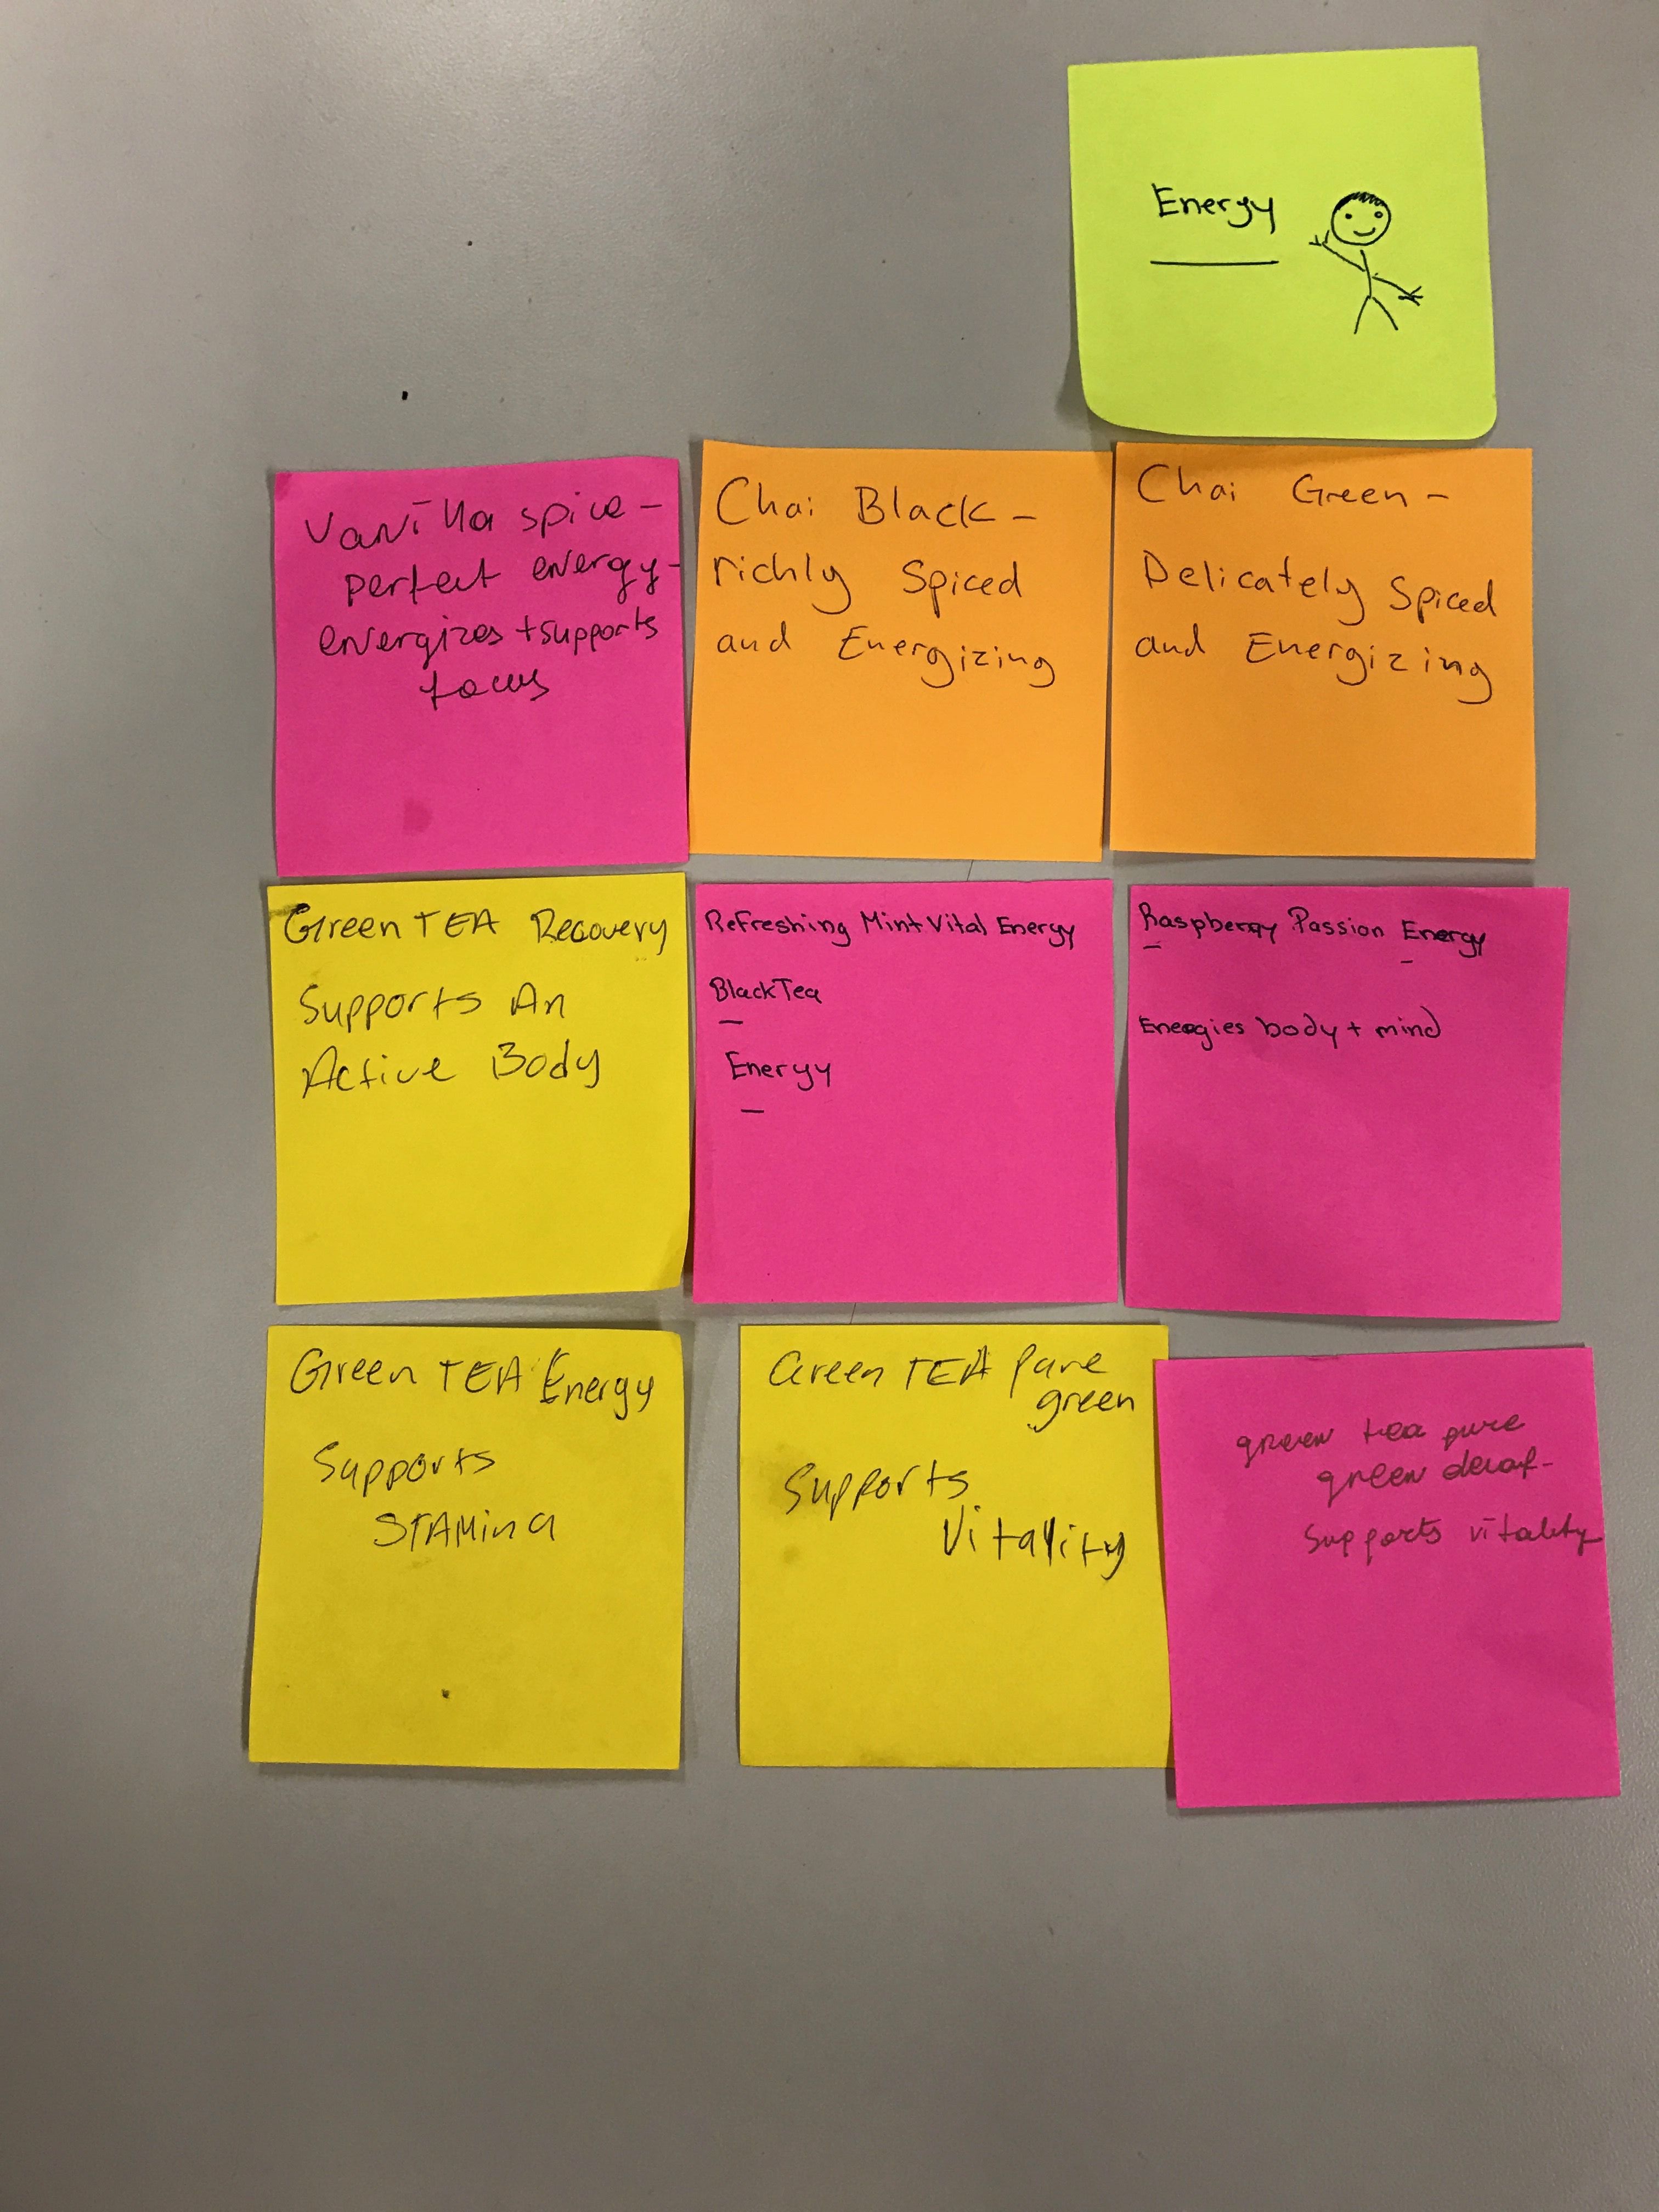 Energy
Vanilla spice -
perfect energy -
energizes + supports
focus
Chai Black -
richly Spiced
and Energizing
Chai Green -
Delicately Spiced
and Energizing
Green TEA Recovery
Supports An
Active Body
Refreshing Mint Vital Energy
Black Tea
Energy
Raspberry Passion Energy
Energies body + mind
Green TEA Energy
Supports
STAMina
Green TEA Pure
green
Supports
Vitality
green tea pure
green decaf -
supports vitality